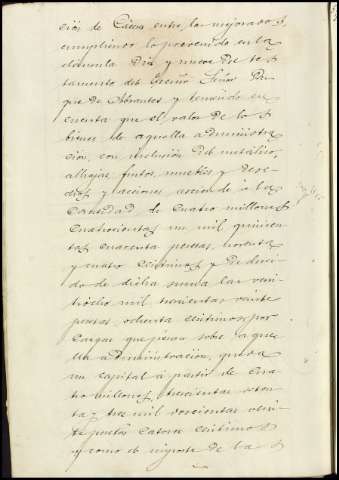 cion de Cáceres entre los mejorados,
cumpliendo lo prevenido en la
clausula Diez y nueve del tes-
tamento del Excmo Señor Du-
que de Abrantes y teniendo en
cuenta que el valor de los
bienes de aquella administra-
cion, con inclusion del metálico,
alhajas, frutos, muebles y
y acciones, asciende á la
Cantidad de cuatro millones
cuatrocientas un mil quinien-
tas cuarenta pesetas, noventa
y cuatro centimos y deduci-
do de dicha suma las vein-
tiocho mil trescientas veinte
pesetas, ochenta centimos por
cargas que pesan sobre aque-
lla administracion, queda
un capital á partir de Cua-
tro millones, trescientas seten-
ta y tres mil doscientas vein-
te pesetas catorce centimos
y como el importe de las